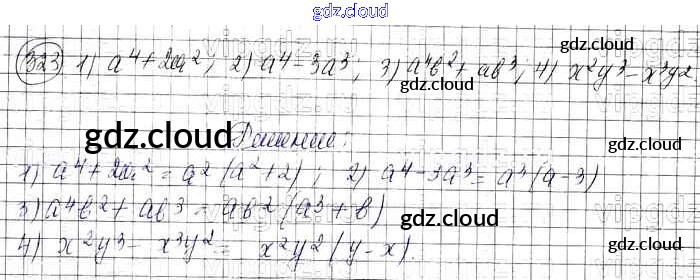 gdz.cloud
323 1) a⁴+2a²; 2) a⁴-3a³; 3) a⁴b²+ab³; 4) x²y³-x³y²
gdz.cloud
gdz.cloud
gdz.cloud Решение:
1) a⁴+2a²=a²(a²+2); 2) a⁴-3a³=a³(a-3)
3) a⁴b²+ab³=ab²(a³+b)
gdz.cloud
4) x²y³-x³y²= x²y²(y-x).
gdz.cloud